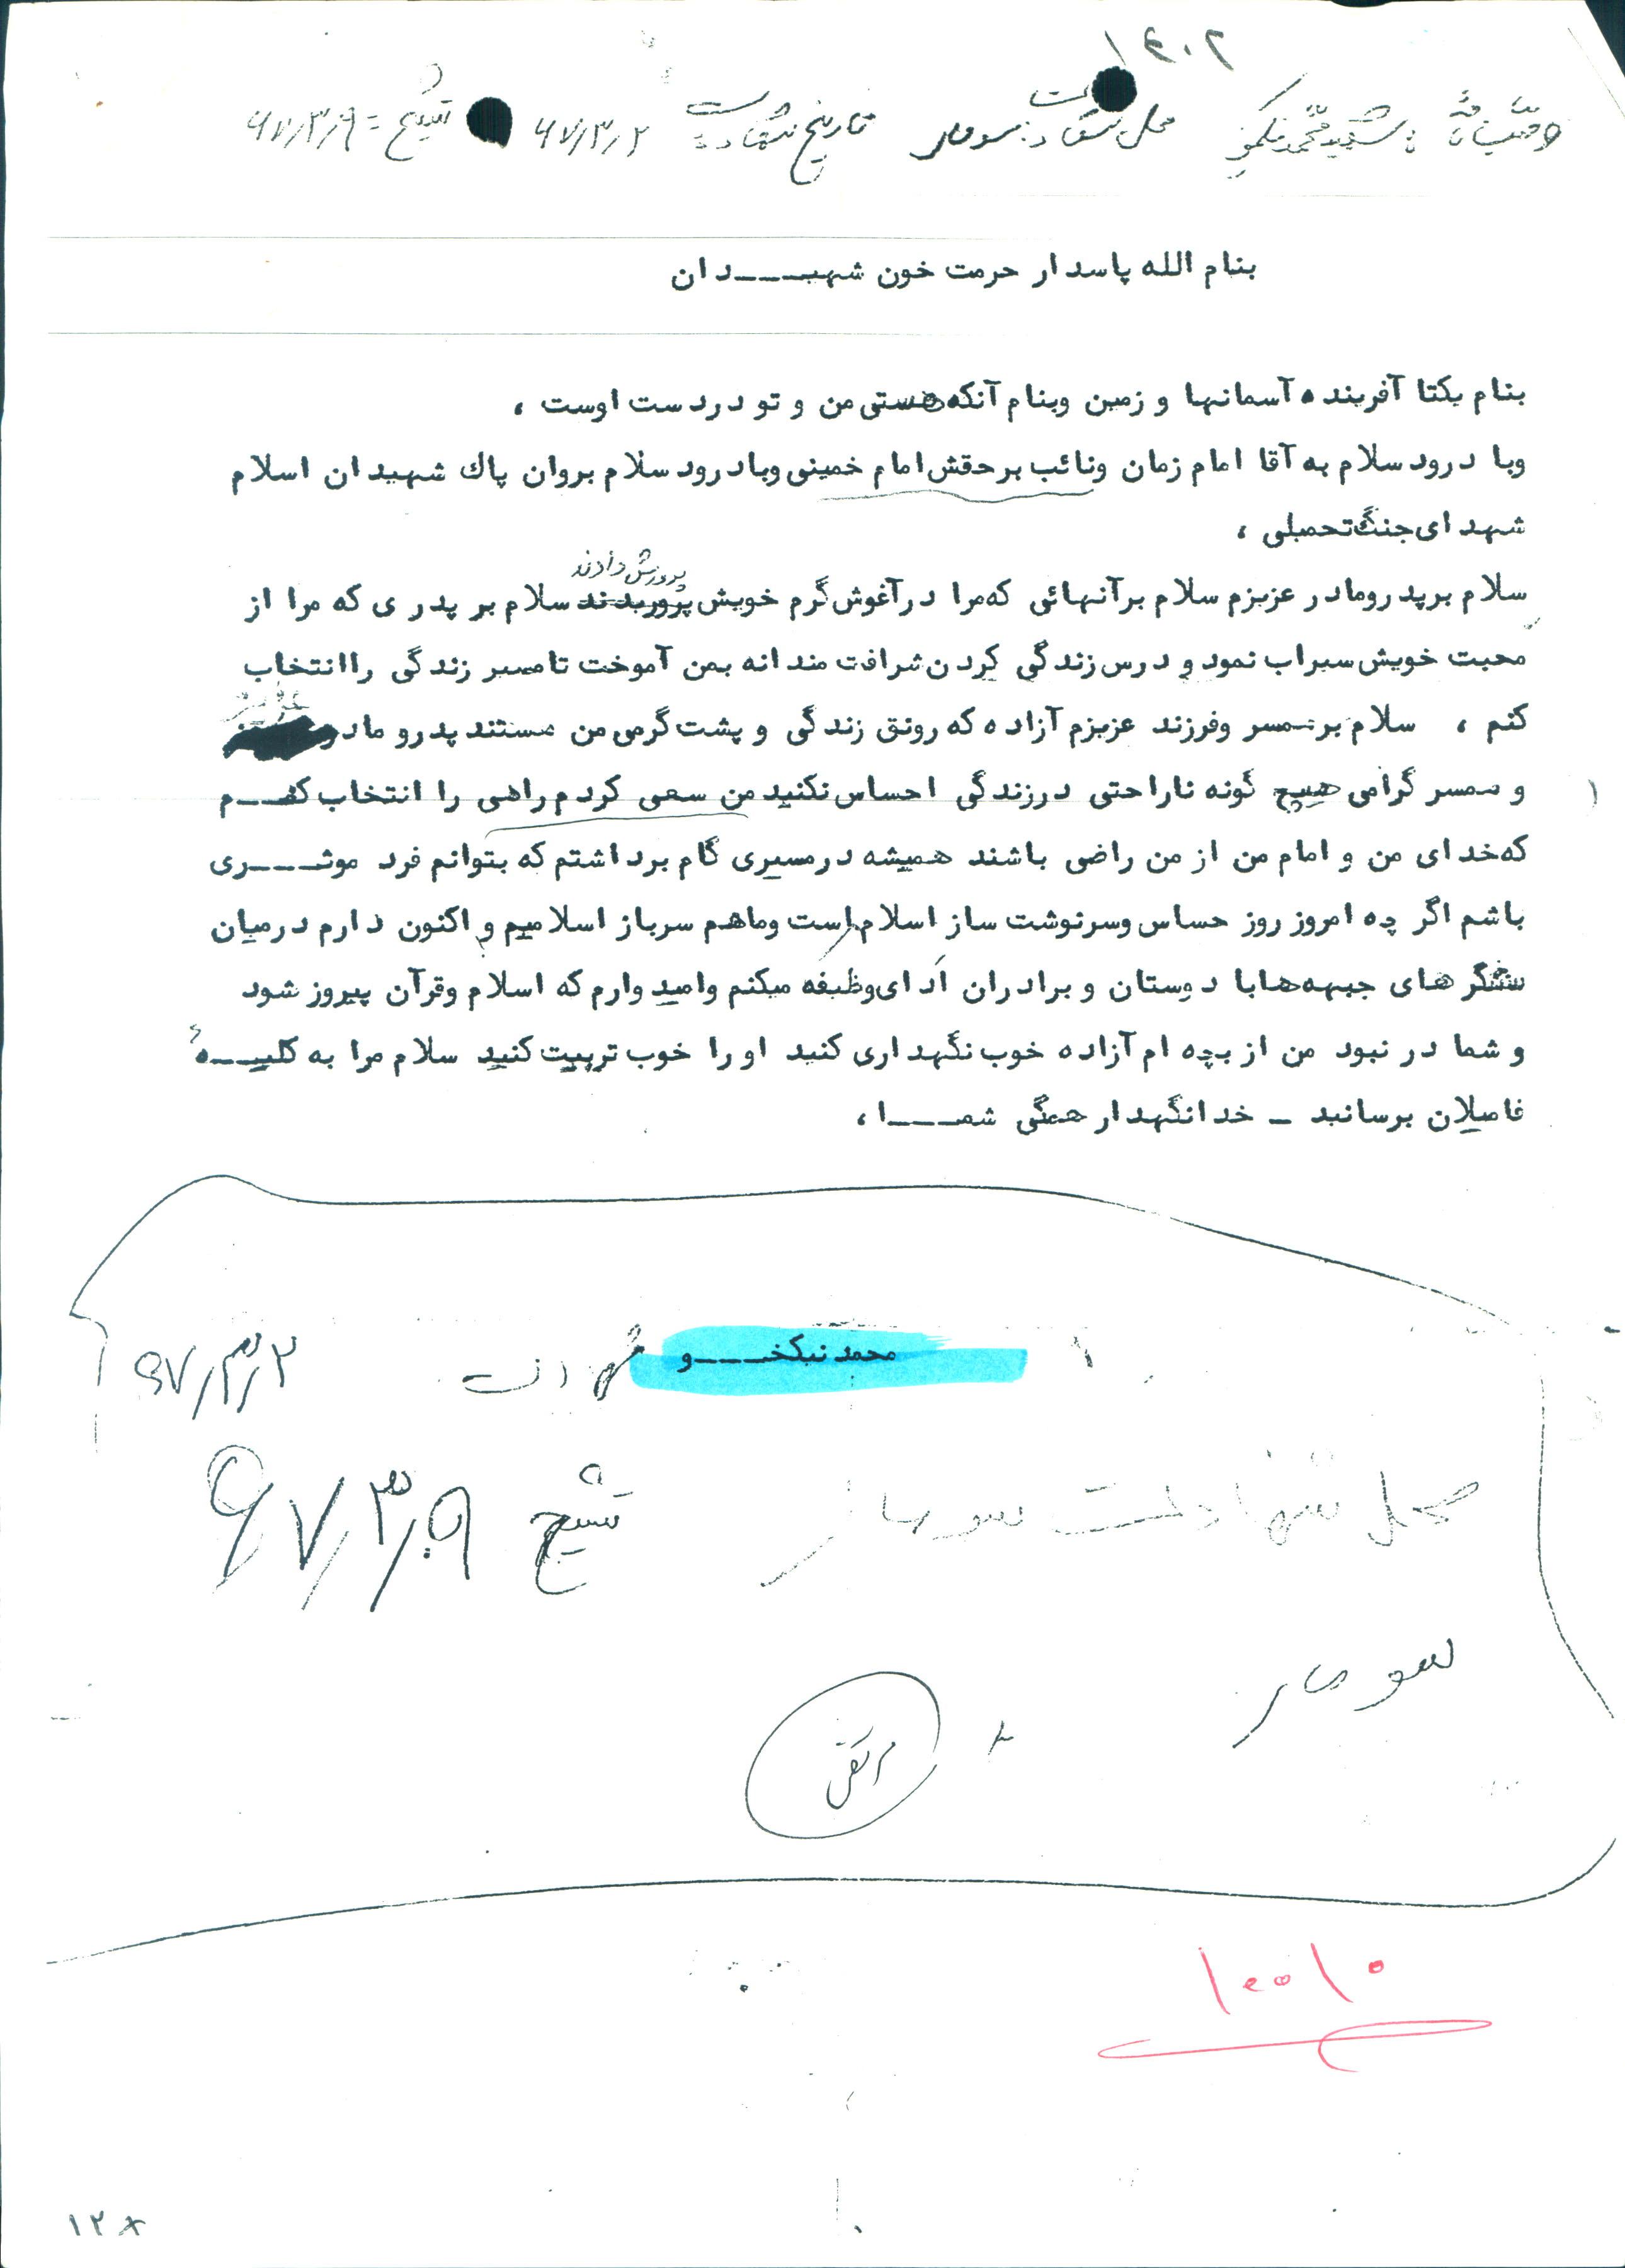 ۱۴۰۲
وصیتنامه شهید محمد نیکخو محل شهادت: سومار تاریخ شهادت: ۶۷/۳/۲ تشییع = ۶۷/۳/۹
بنام الله پاسدار حرمت خون شهیـــدان
بنام یکتا آفریننده آسمانها و زمین وبنام آنکه هستی من و تو دردست اوست ،
وبا درود سلام به آقا امام زمان ونائب برحقش امام خمینی وبا درود سلام بروان پاک شهیدان اسلام
شهدای جنگ تحمیلی ،
پرورش دادند
سلام برپدرومادر عزیزم سلام برآنهائی که مرا درآغوش گرم خویش پروریدند سلام بر پدری که مرا از
محبت خویش سیراب نمود و درس زندگی کردن شرافت مندانه بمن آموخت تا مسیر زندگی را انتخاب
کنم ، سلام بر همسر وفرزند عزیزم آزاده که رونق زندگی و پشت گرمی من هستند پدرو مادر عزیز
و همسر گرامی هیچ گونه ناراحتی درزندگی احساس نکنید من سعی کردم راهی را انتخاب کنـــم
۱
که خدای من و امام من از من راضی باشند همیشه درمسیری گام برداشتم که بتوانم فرد موثـــری
باشم اگر چه امروز روز حساس وسرنوشت ساز اسلام است وماهم سرباز اسلامیم و اکنون دارم درمیان
سنگرهای جبهه ها با دوستان و برادران ادای وظیفه میکنم وامید وارم که اسلام وقرآن پیروز شود
و شما در نبود من از بچه ام آزاده خوب نگهداری کنید او را خوب تربیت کنید سلام مرا به کلیـــهٔ
فامیلان برسانید ـ خدانگهدار همگی شمـــا ،
محمد نیکخـــو شهادت ۶۷/۳/۲
محل شهادت سومار تشییع ۶۷/۳/۹
سومار
۱۰۰۱۰
۱۲۸